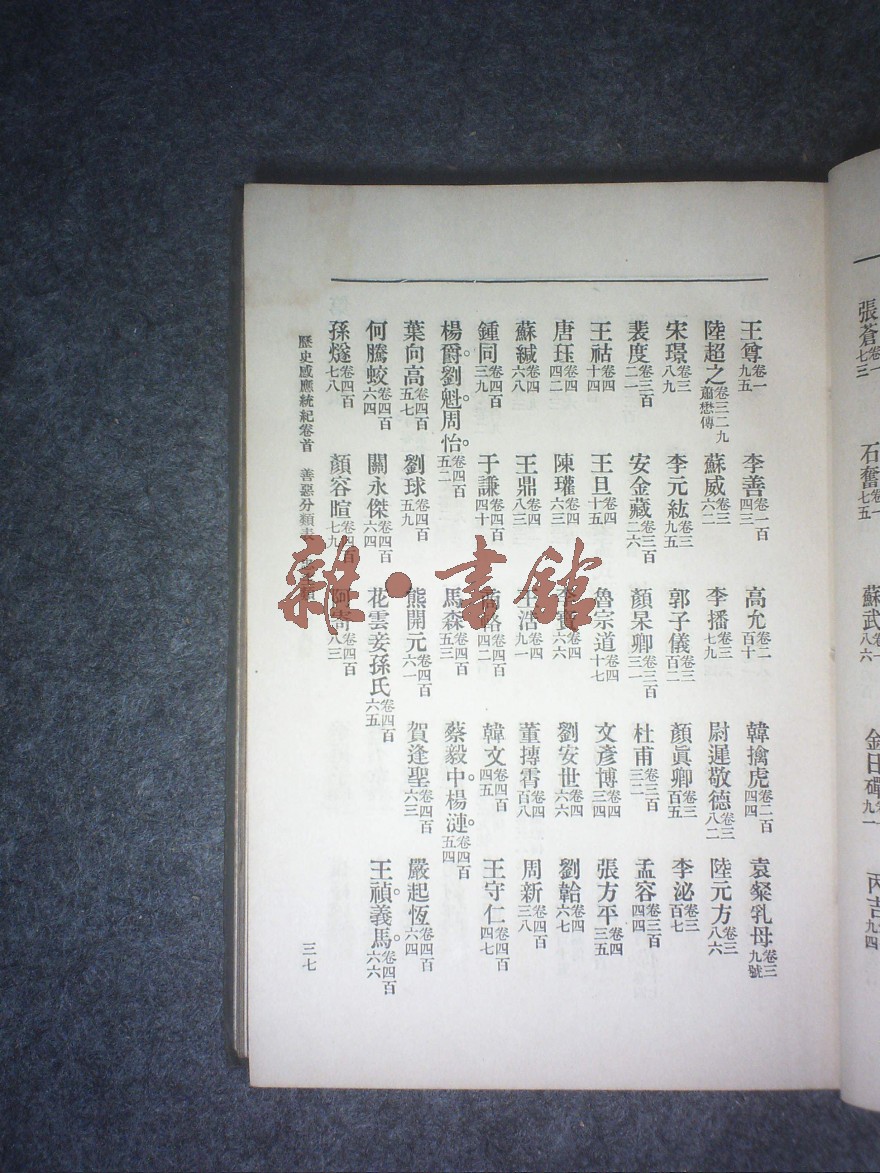 張蒼卷一七三　石奮七五　蘇武八六　金日磾九一　丙吉九四
王尊卷一九五　李善卷一百四三　高允卷二百十　韓擒虎卷二百四四　袁粲乳母卷三九號
陸超之卷三二九蕭懋傳　蘇威卷三六二　李播卷三七九　尉遲敬德卷三八二　陸元方卷三八六
宋璟卷三八九　李元紘卷三九五　郭子儀卷三百二　顏眞卿卷三百五　李泌卷三百七
裴度卷三百二一　安金藏卷三百二六　顏杲卿卷三百三一　杜甫卷三百三二　孟容卷三百四四
王祜卷四十四　王旦卷四十五　魯宗道卷四十七　文彥博卷四三四　張方平卷四三五
唐珏卷四四二　陳瓘卷四六三　卷四六六　劉安世卷四六六　劉韐卷四六七
蘇緘卷四六八　王鼎卷四八三　王浩卷四九一　董摶霄卷四百八　周新卷四百三八
鍾同卷四百三九　于謙卷四百四十　卷四百四二　韓文卷四百四五　王守仁卷四百四七
楊爵。劉魁。周怡。卷四百五二　馬森卷四百五三　蔡毅中。楊漣。卷四百五四
葉向高卷四百五七　劉球卷四百五九　熊開元卷四百六一　賀逢聖卷四百六三　嚴起恆卷四百六四
何騰蛟卷四百六四　關永傑卷四百六四　花雲妾孫氏卷四百六五　王禎。義馬。卷四百六六
孫燧卷四百七八　顏容暄卷四百七九　阿寄卷四百八三
歷史感應統紀卷首　善惡分類表　三七
雜·書館